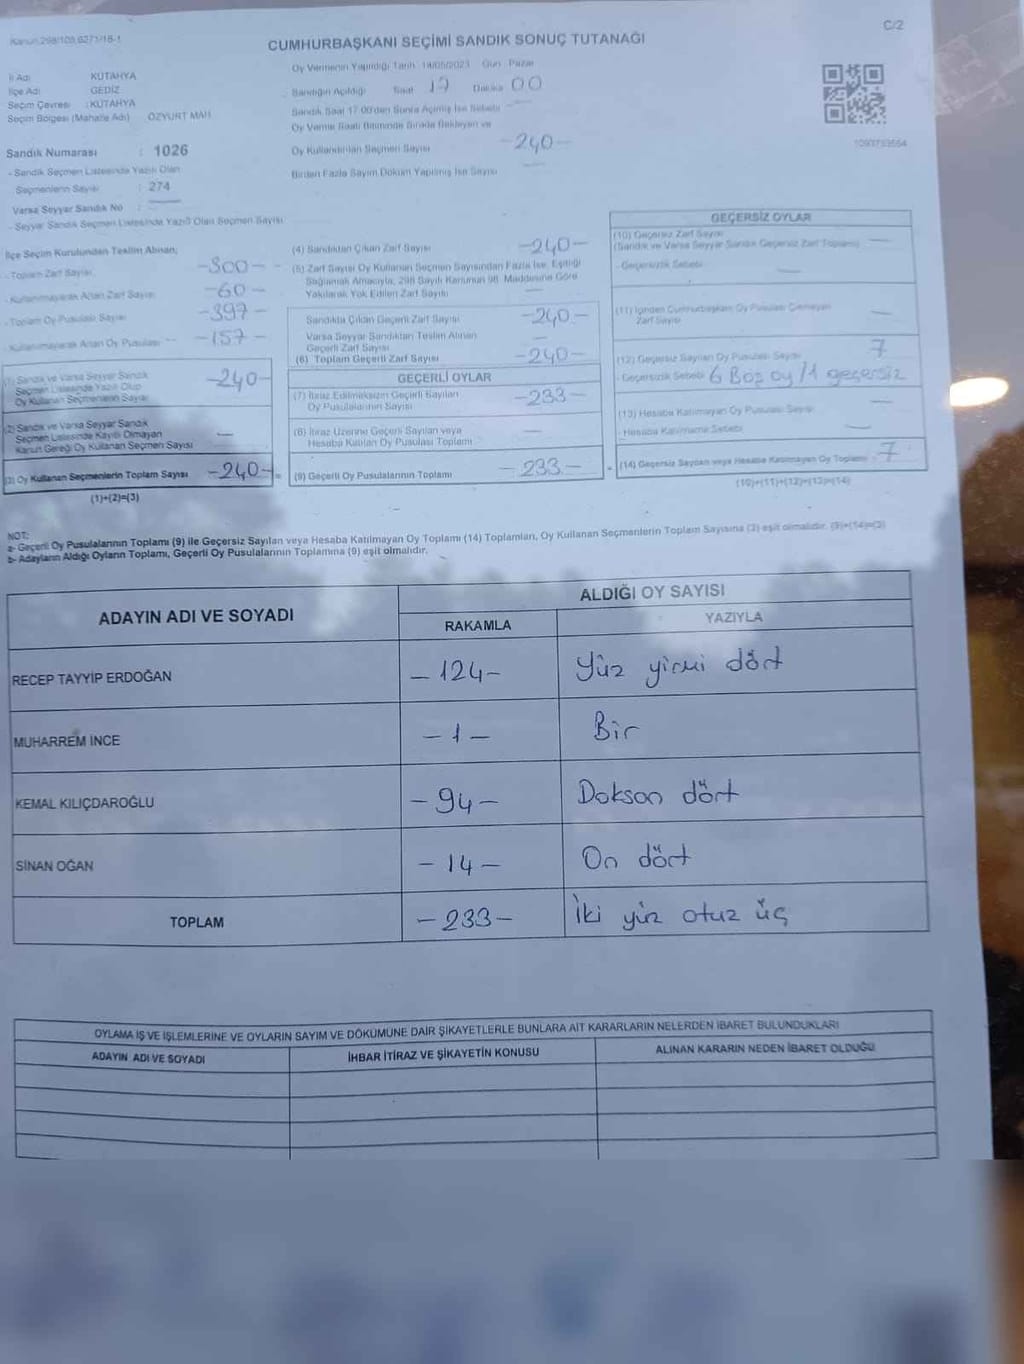 Kanun:298/105,6271/16-1
C/2
CUMHURBAŞKANI SEÇİMİ SANDIK SONUÇ TUTANAĞI
İl Adı KÜTAHYA
İlçe Adı GEDİZ
Seçim Çevresi : KÜTAHYA
Seçim Bölgesi (Mahalle Adı) ÖZYURT MAH
Sandık Numarası : 1026
- Sandık Seçmen Listesinde Yazılı Olan
Seçmenlerin Sayısı : 274
Varsa Seyyar Sandık No
- Seyyar Sandık Seçmen Listesinde Yazılı Olan Seçmen Sayısı
Oy Vermenin Yapıldığı Tarih 14/05/2023 Gün Pazar
Sandığın Açıldığı Saat 17 Dakika 00
Sandık Saat 17.00'den Sonra Açılmış İse Sebebi
Oy Verme Saati Bitiminde Sırada Bekleyen ve
Oy Kullandırılan Seçmen Sayısı -240-
Birden Fazla Sayım Döküm Yapılmış İse Sayısı
1093753564
İlçe Seçim Kurulundan Teslim Alınan;
- Toplam Zarf Sayısı -300-
- Kullanılmayarak Artan Zarf Sayısı -60-
- Toplam Oy Pusulası Sayısı -397-
- Kullanılmayarak Artan Oy Pusulası -157-
(1) Sandık ve Varsa Seyyar Sandık
Seçmen Listesinde Yazılı Olup
Oy Kullanan Seçmenlerin Sayısı -240-
(2) Sandık ve Varsa Seyyar Sandık
Seçmen Listesinde Kayıtlı Olmayan
Kanun Gereği Oy Kullanan Seçmen Sayısı
(3) Oy Kullanan Seçmenlerin Toplam Sayısı -240- =
(1)+(2)=(3)
(4) Sandıktan Çıkan Zarf Sayısı -240-
(5) Zarf Sayısı Oy Kullanan Seçmen Sayısından Fazla İse, Eşitliği
Sağlamak Amacıyla, 298 Sayılı Kanunun 98. Maddesine Göre
Yakılarak Yok Edilen Zarf Sayısı
Sandıkta Çıkan Geçerli Zarf Sayısı -240-
Varsa Seyyar Sandıktan Teslim Alınan
Geçerli Zarf Sayısı
(6) Toplam Geçerli Zarf Sayısı -240-
GEÇERLİ OYLAR
(7) İtiraz Edilmeksizin Geçerli Sayılan
Oy Pusulalarının Sayısı -233-
(8) İtiraz Üzerine Geçerli Sayılan veya
Hesaba Katılan Oy Pusulası Toplamı
(9) Geçerli Oy Pusulalarının Toplamı -233-
GEÇERSİZ OYLAR
(10) Geçersiz Zarf Sayısı
(Sandık ve Varsa Seyyar Sandık Geçersiz Zarf Toplamı)
- Geçersizlik Sebebi
(11) İçinden Cumhurbaşkanı Oy Pusulası Çıkmayan
Zarf Sayısı
(12) Geçersiz Sayılan Oy Pusulası Sayısı 7
- Geçersizlik Sebebi 6 Boş oy / 1 geçersiz
(13) Hesaba Katılmayan Oy Pusulası Sayısı
- Hesaba Katılmama Sebebi
+ (14) Geçersiz Sayılan veya Hesaba Katılmayan Oy Toplamı 7
(10)+(11)+(12)+(13)=(14)
NOT:
a- Geçerli Oy Pusulalarının Toplamı (9) ile Geçersiz Sayılan veya Hesaba Katılmayan Oy Toplamı (14) Toplamları, Oy Kullanan Seçmenlerin Toplam Sayısına (3) eşit olmalıdır. (9)+(14)=(3)
b- Adayların Aldığı Oyların Toplamı, Geçerli Oy Pusulalarının Toplamına (9) eşit olmalıdır.
ADAYIN ADI VE SOYADI
ALDIĞI OY SAYISI
RAKAMLA YAZIYLA
RECEP TAYYİP ERDOĞAN -124- Yüz yirmi dört
MUHARREM İNCE -1- Bir
KEMAL KILIÇDAROĞLU -94- Doksan dört
SİNAN OĞAN -14- On dört
TOPLAM -233- İki yüz otuz üç
OYLAMA İŞ VE İŞLEMLERİNE VE OYLARIN SAYIM VE DÖKÜMÜNE DAİR ŞİKAYETLERLE BUNLARA AİT KARARLARIN NELERDEN İBARET BULUNDUKLARI
ADAYIN ADI VE SOYADI İHBAR İTİRAZ VE ŞİKAYETİN KONUSU ALINAN KARARIN NEDEN İBARET OLDUĞU